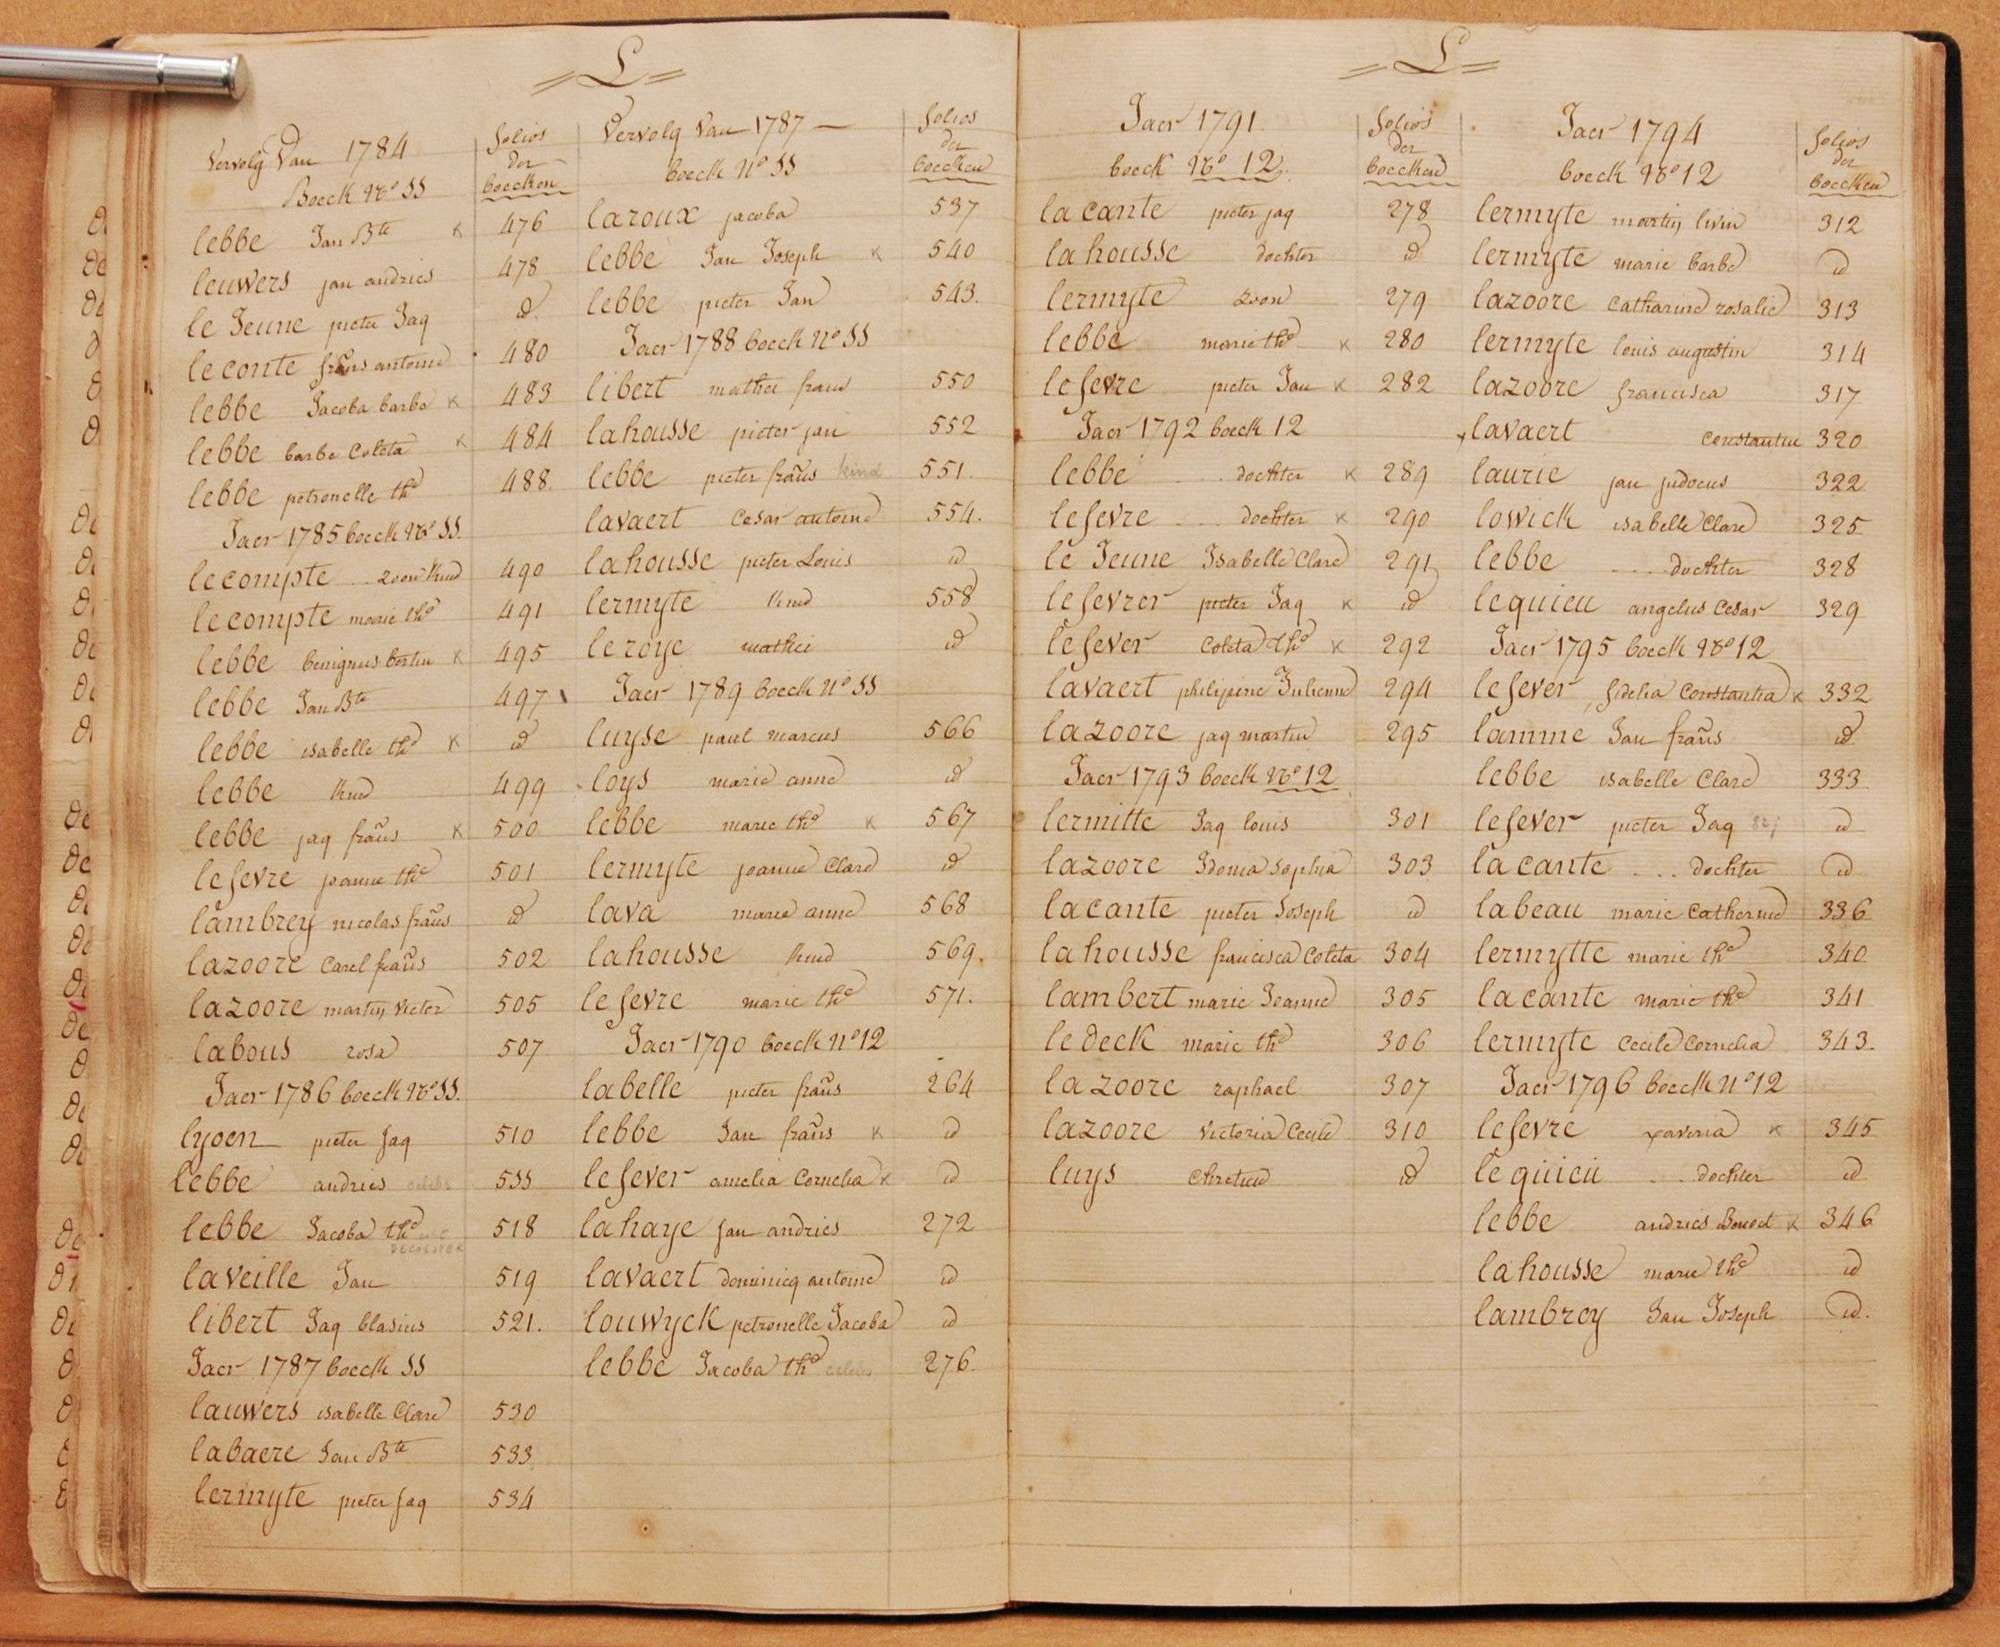 L
Vervolg Van 1784
Boeck No 11
folios
der
boecken
lebbe Jan Bte K 476
leuwers jan andries 478
le Jeune pieter Jaq id
leconte frans antoine 480
lebbe Jacoba barbe K 483
lebbe barbe Coleta K 484
lebbe petronelle the 488
Jaer 1785 boeck No 11
lecompte .. zoon kind 490
lecompte marie the 491
lebbe benignus bertin K 495
lebbe Jan Bte 497
lebbe isabelle the K id
lebbe kind 499
lebbe jaq frans K 500
lefevre joanne the 501
lambrey nicolas frans id
lazoore Carel frans 502
lazoore martin victor 505
labous rosa 507
Jaer 1786 boeck No 11
lyoen pieter Jaq 510
lebbe andries 511
lebbe Jacoba the 518
laveille Jan 519
libert Jaq blasius 521.
Jaer 1787 boeck 11
lauwers isabelle Clare 530
labaere Jan Bte 533
lermyte pieter Jaq 534
Vervolg Van 1787
boeck No 11
folios
der
boecken
laroux jacoba 537
lebbe Jan Joseph K 540
lebbe pieter Jan 543.
Jaer 1788 boeck No 11
libert mathei frans 550
lahousse pieter jan 552
lebbe pieter frans kind 551.
lavaert Cesar antoine 554.
lahousse pieter Louis id
lermyte kind 558
leroye mathei id
Jaer 1789 boeck No 11
luyse paul marcus 566
loys marie anne id
lebbe marie the K 567
lermyte joanne Clare id
lava marie anne 568
lahousse kind 569.
lefevre marie the 571.
Jaer 1790 boeck No 12
labelle pieter frans 264
lebbe Jan frans K id
lefever amelia Cornelia K id
lahaye jan andries 272
lavaert dominicq antoine id
louwyck petronelle Jacoba id
lebbe Jacoba the 276.
L
Jaer 1791
boeck No 12
folios
der
boecken
lacante pieter jaq 278
lahousse dochter id
lermyte zoon 279
lebbe marie the K 280
lefevre pieter Jan K 282
Jaer 1792 boeck 12
lebbe ... dochter K 289
lefevre ... dochter K 290
le Jeune Isabelle Clare 291
lefevrer pieter Jaq K id
lefever Coleta the K 292
lavaert philipine Julienne 294
lazoore jaq martin 295
Jaer 1793 boeck No 12
lermitte Jaq louis 301
lazoore Idonia Sophia 303
lacante pieter Joseph id
lahousse francisca Coleta 304
lambert marie Jeanne 305
ledeck marie the 306
lazoore raphael 307
lazoore victoria Cecile 310
luys Chretien id
Jaer 1794
boeck No 12
folios
der
boecken
lermyte martin livin 312
lermyte marie barbe id
lazoore Catharine rosalie 313
lermyte louis augustin 314
lazoore francisca 317
lavaert Constantin 320
laurie jan judocus 322
lowick isabelle Clare 325
lebbe .... dochter 328
lequieu angelus Cesar 329
Jaer 1795 boeck No 12
lefever fidelia Constantia K 332
lamme Jan frans id
lebbe isabelle Clare 333
lefever pieter Jaq id
lacante .... dochter id
labeau marie Catherine 336
lermytte marie the 340
lacante marie the 341
lermyte Cecile Cornelia 343.
Jaer 1796 boeck No 12
lefevre xaveria K 345
lequieu ... dochter id
lebbe andries Benoit K 346
lahousse marie the id
lambrey Jan Joseph id.